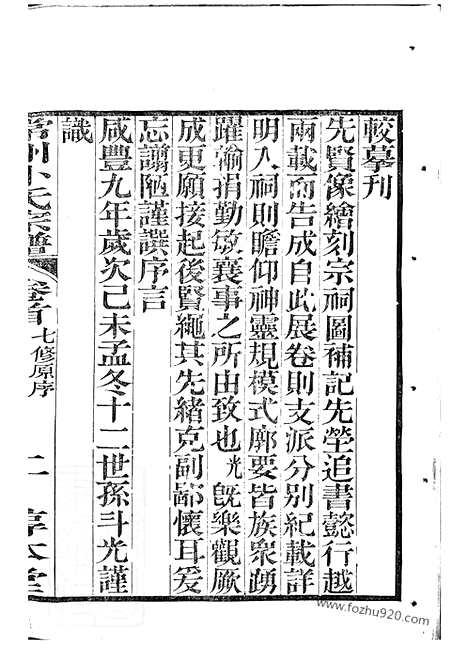 較摹刊
先賢像繪刻宗祠圖補記先塋追書懿行越
兩載而告成自此展卷則支派分別紀載詳
明入祠則瞻仰神靈規模式廓要皆族衆踴
躍輸捐勤敏襄事之所由致也光旣樂觀厥
成更願接起後賢繩其先緒克副鄙懷耳爰
忘譾陋謹譔序言
咸豐九年歲次己未孟冬十二世孫斗光謹
識
氏宗譜 卷首 七修原序 二
www.fozhu920.com